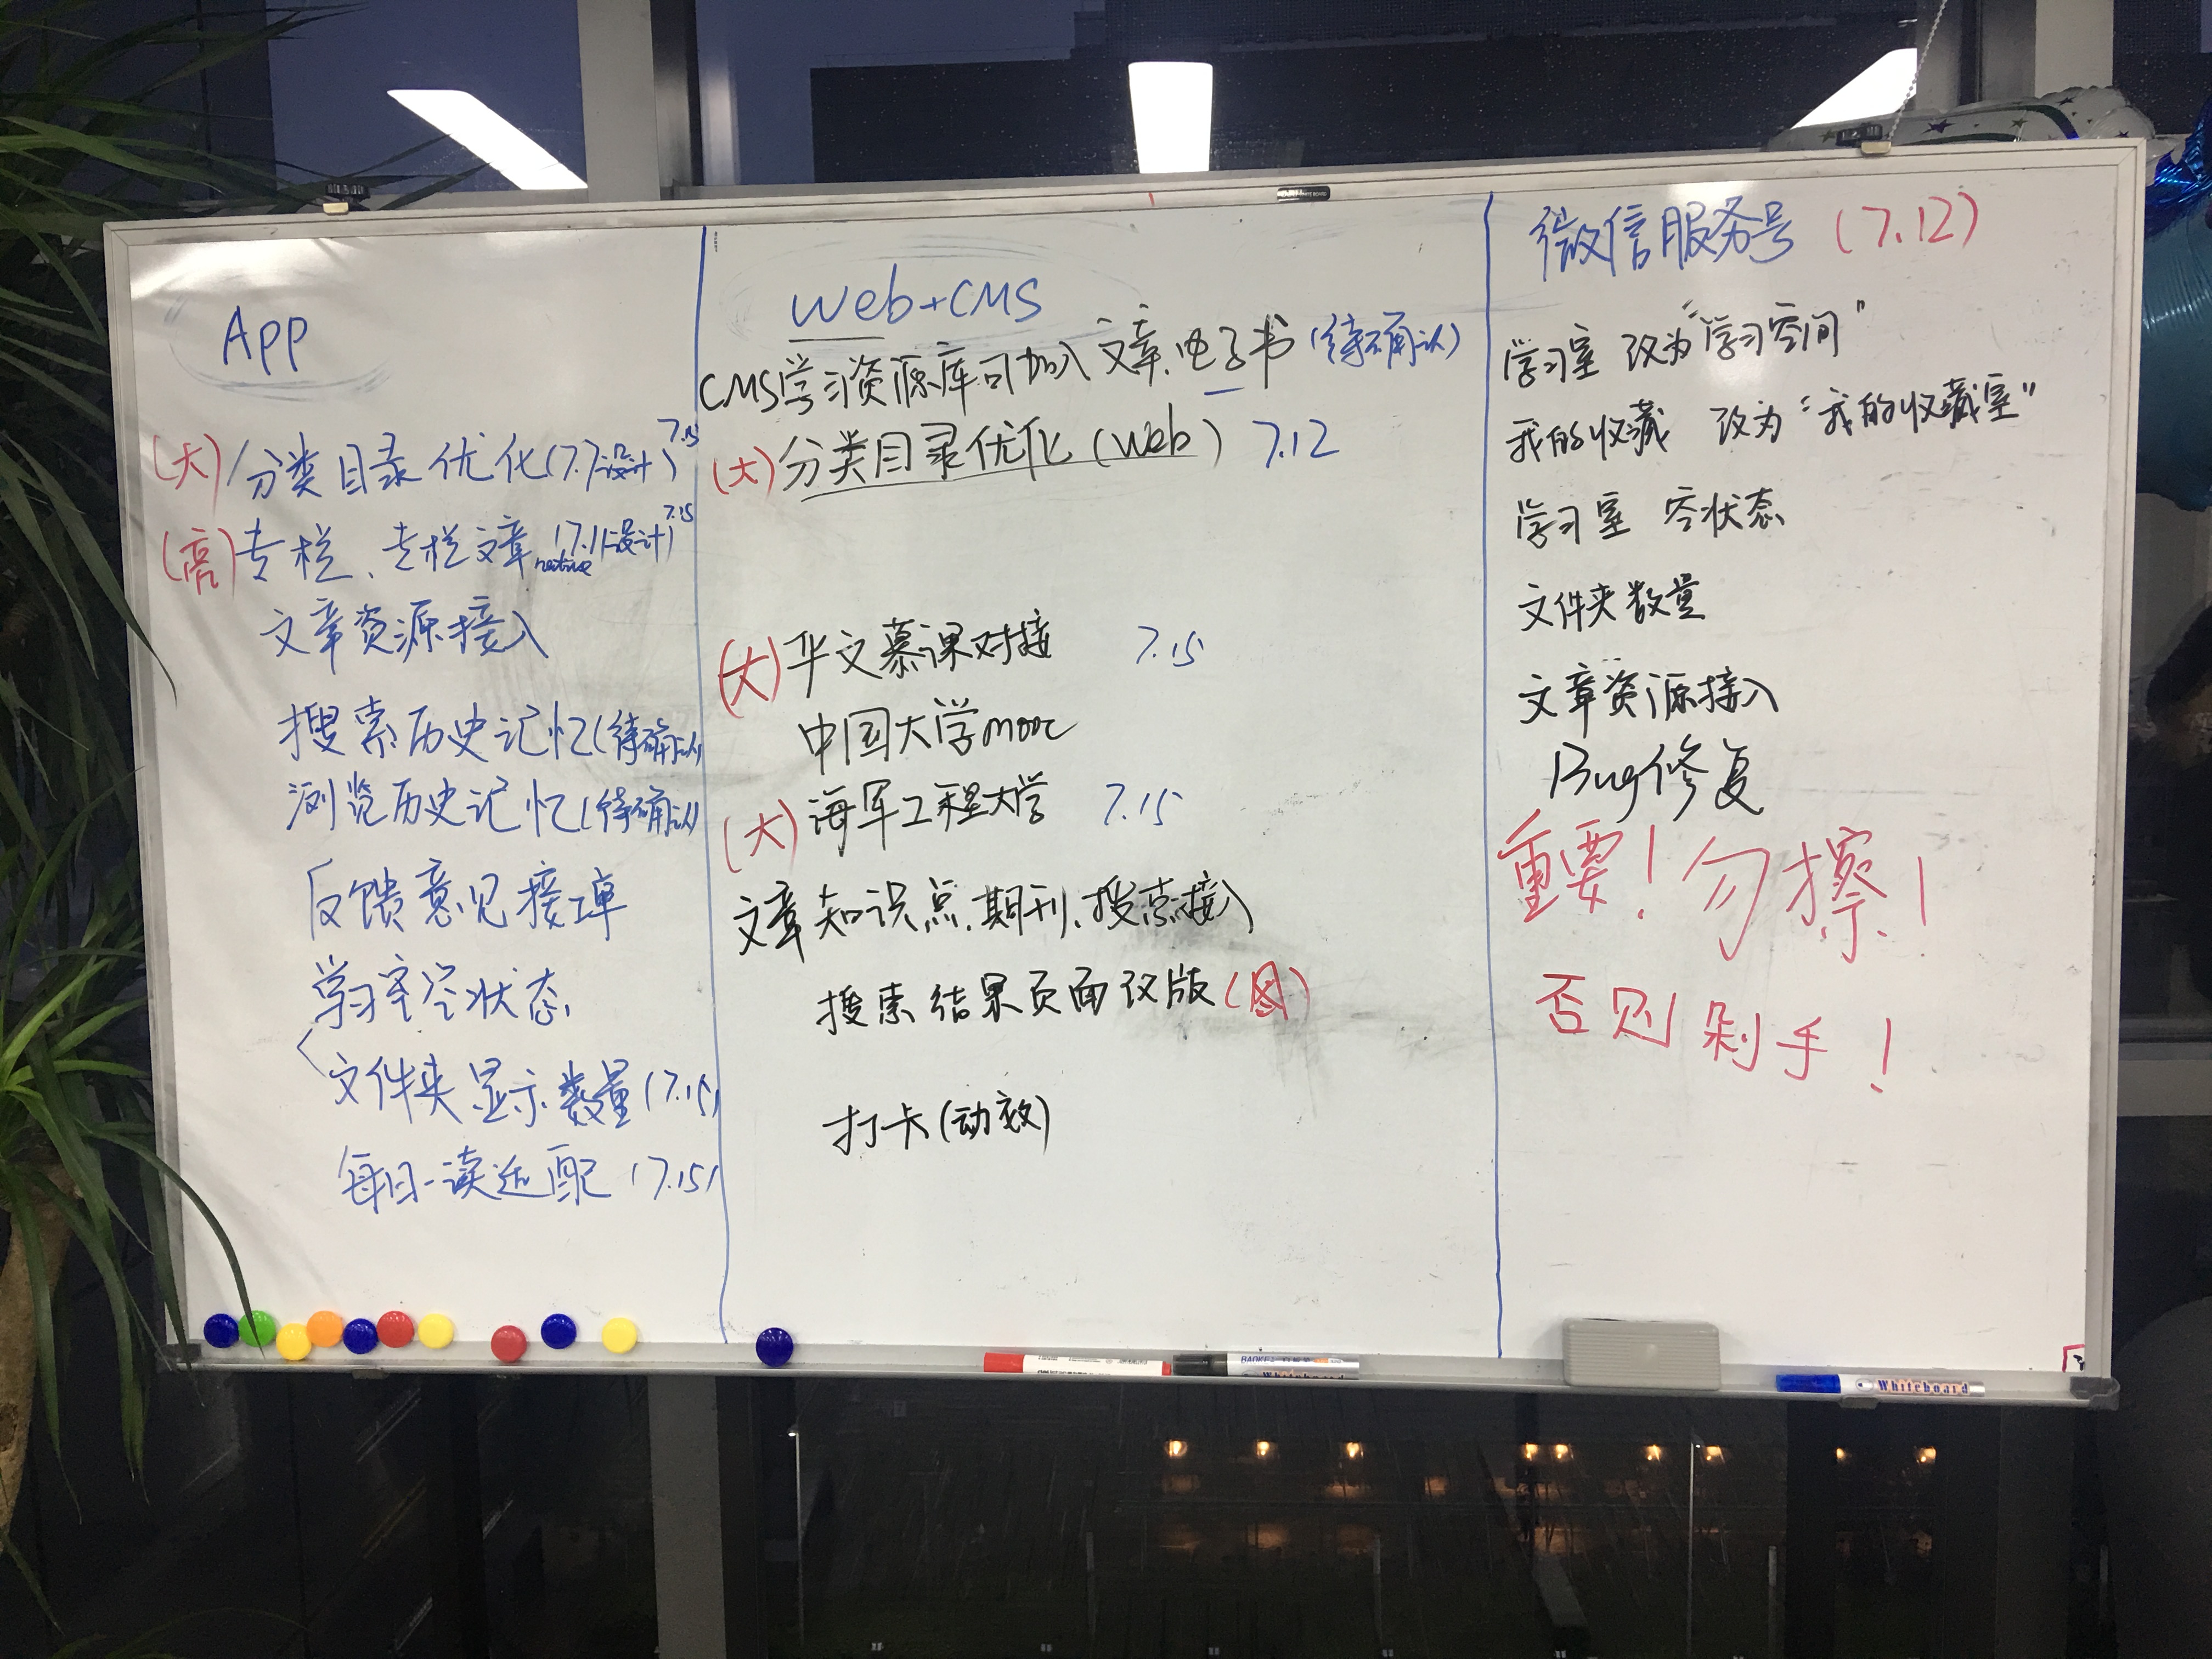 App
(大) 分类目录优化(7.7设计) 7.15
(高) 专栏、专栏文章 native (7.11设计) 7.15
文章资源接入
搜索历史记忆(待确认)
浏览历史记忆(待确认)
反馈意见接
学习室空状态
文件夹显示数量(7.15)
每日一读适配(7.15)
Web+CMS
CMS学习资源库可加入文章、电子书(待确认)
(大)分类目录优化(Web) 7.12
(大)华文慕课对接 7.15
中国大学mooc
(大)海军工程大学 7.15
文章知识点、期刊、搜索接入
搜索结果页面改版(图)
打卡(动效)
微信服务号 (7.12)
学习室 改为"学习空间"
我的收藏 改为"我的收藏室"
学习室 空状态
文件夹数量
文章资源接入
Bug修复
重要!勿擦!
否则剁手!
Whiteboard
Whiteboard